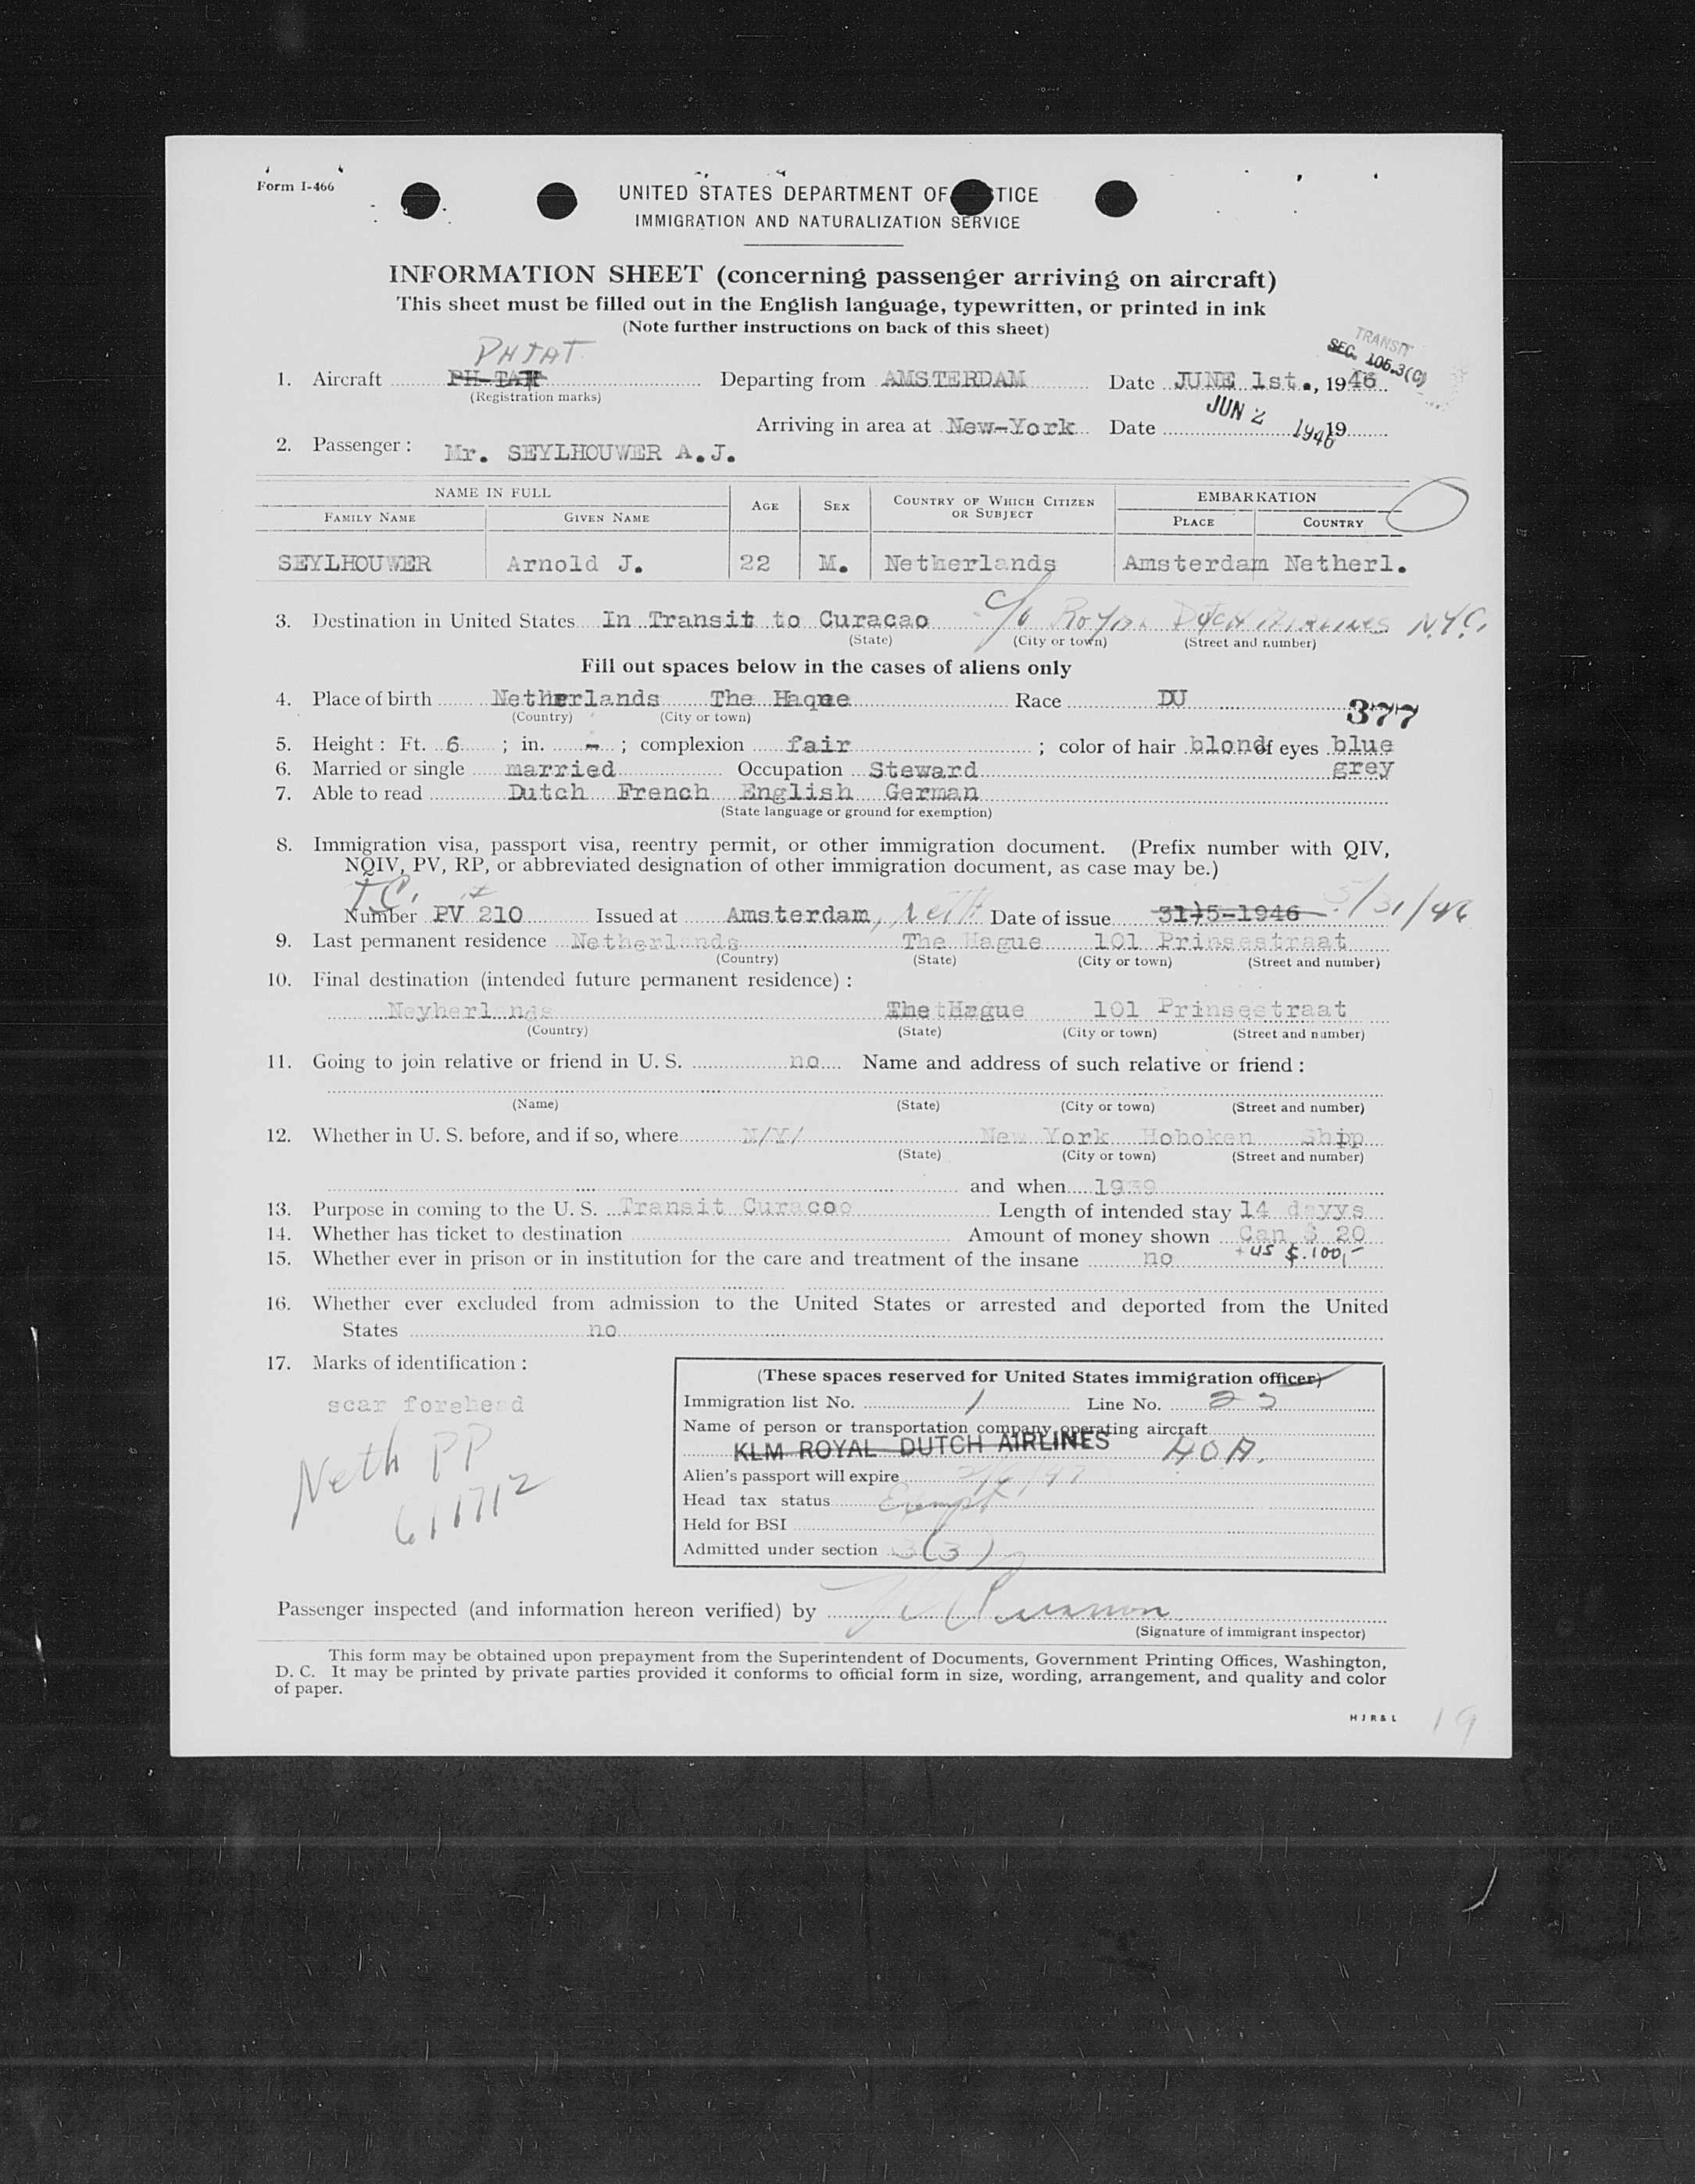 Form I-466
UNITED STATES DEPARTMENT OF TICE
IMMIGRATION AND NATURALIZATION SERVICE
INFORMATION SHEET (concerning passenger arriving on aircraft)
This sheet must be filled out in the English language, typewritten, or printed in ink
(Note further instructions on back of this sheet)
TRANSIT
SEC. 105.3(C)
PHTAT
1. Aircraft PH-TAT Departing from AMSTERDAM Date JUNE 1st., 1946
(Registration marks)
Arriving in area at New-York Date JUN 2 1946 19
2. Passenger: Mr. SEYLHOUWER A.J.
NAME IN FULL AGE SEX COUNTRY OF WHICH CITIZEN OR SUBJECT EMBARKATION
FAMILY NAME GIVEN NAME PLACE COUNTRY
SEYLHOUWER Arnold J. 22 M. Netherlands Amsterdam Netherl.
3. Destination in United States In Transit to Curacao c/o Royal Dutch Airlines N.Y.C.
(State) (City or town) (Street and number)
Fill out spaces below in the cases of aliens only
4. Place of birth Netherlands The Haque Race DU
(Country) (City or town)
377
5. Height: Ft. 6 ; in. - ; complexion fair ; color of hair blond of eyes blue
6. Married or single married Occupation Steward grey
7. Able to read Dutch French English German
(State language or ground for exemption)
8. Immigration visa, passport visa, reentry permit, or other immigration document. (Prefix number with QIV,
NQIV, PV, RP, or abbreviated designation of other immigration document, as case may be.)
T.C.
Number PV 210 Issued at Amsterdam, Neth Date of issue 31)5-1946 5/31/46
9. Last permanent residence Netherlands The Hague 101 Prinsestraat
(Country) (State) (City or town) (Street and number)
10. Final destination (intended future permanent residence):
Neyherlands The Hague 101 Prinsestraat
(Country) (State) (City or town) (Street and number)
11. Going to join relative or friend in U. S. no Name and address of such relative or friend:
(Name) (State) (City or town) (Street and number)
12. Whether in U. S. before, and if so, where N/Y/ New York Hoboken Ship
(State) (City or town) (Street and number)
and when 1939
13. Purpose in coming to the U. S. Transit Curacoo Length of intended stay 14 dayys
14. Whether has ticket to destination Amount of money shown Can $ 20
+ US $.100,-
15. Whether ever in prison or in institution for the care and treatment of the insane no
16. Whether ever excluded from admission to the United States or arrested and deported from the United
States no
17. Marks of identification:
scar forehead
Neth PP
611712
(These spaces reserved for United States immigration officer)
Immigration list No. 1 Line No. 23
Name of person or transportation company operating aircraft
KLM ROYAL DUTCH AIRLINES HOA.
Alien's passport will expire 2/6/47
Head tax status Exempt
Held for BSI
Admitted under section 3(3)
Passenger inspected (and information hereon verified) by
(Signature of immigrant inspector)
This form may be obtained upon prepayment from the Superintendent of Documents, Government Printing Offices, Washington,
D. C. It may be printed by private parties provided it conforms to official form in size, wording, arrangement, and quality and color
of paper.
HJR&L
19